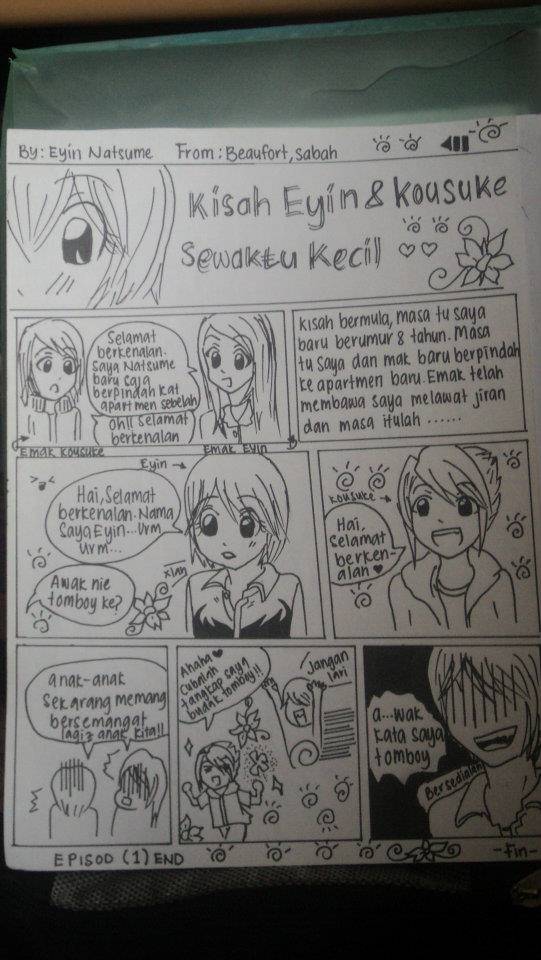 By: Eyin Natsume From: Beaufort, Sabah
Kisah Eyin & Kousuke
Sewaktu Kecil
Selamat
berkenalan.
Saya Natsume
baru saja
berpindah kat
apartmen sebelah
Ohh Selamat
berkenalan
Emak Kousuke
Emak Eyin
kisah bermula, masa tu saya
baru berumur 8 tahun. Masa
tu saya dan mak baru berpindah
ke apartmen baru. Emak telah
membawa saya melawat jiran
dan masa itulah ......
Eyin
Hai, Selamat
berkenalan. Nama
Saya Eyin...Urm
Urm...
Awak nie
tomboy ke?
kousuke
Hai,
Selamat
berken-
alan
anak-anak
Sekarang memang
bersemangat
lagi2 anak kita!!
Ahaha
Cubalah
tangkap saya
budak tomboy!!
Jangan
lari
a...wak
kata saya
tomboy
Bersedialah
EPISOD (1) END
-Fin-